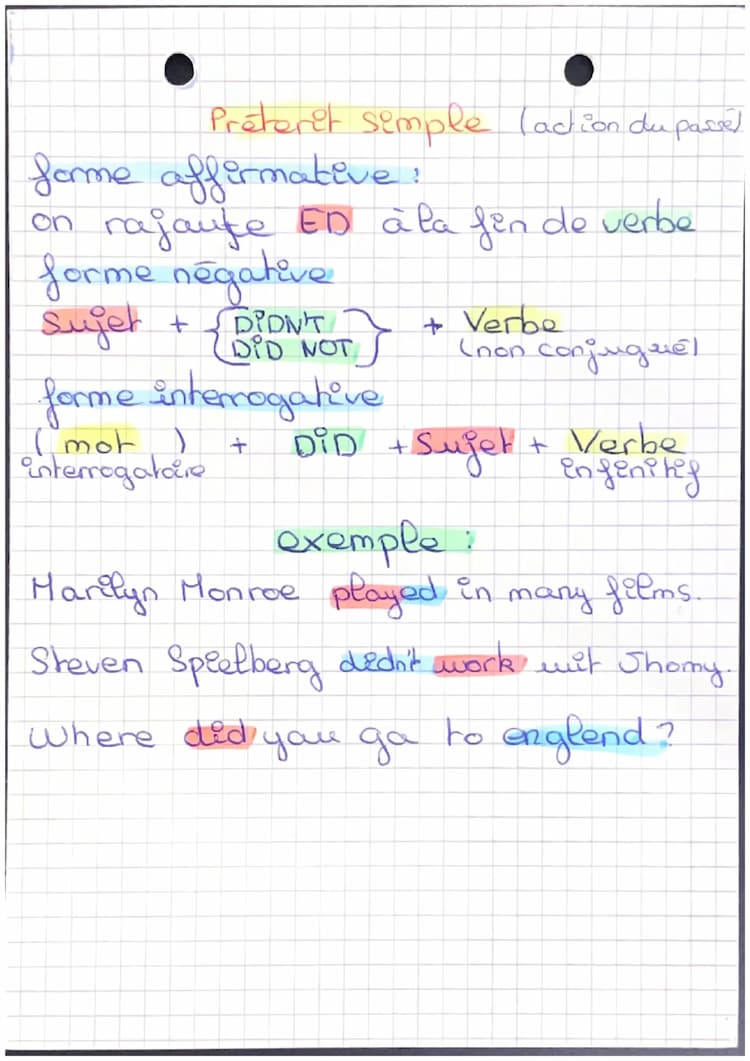 Préterit simple (action du passé)
forme affirmative :
on rajoute ED à la fin de verbe
forme négative
Sujet + { DIDN'T
DID NOT } + Verbe
(non conjugué)
forme interrogative
( mot ) + DID + Sujet + Verbe
interrogatoire infinitif
exemple :
Marilyn Monroe played in many films.
Steven Spielberg didn't work wit Jhomy.
Where did you go to englend ?